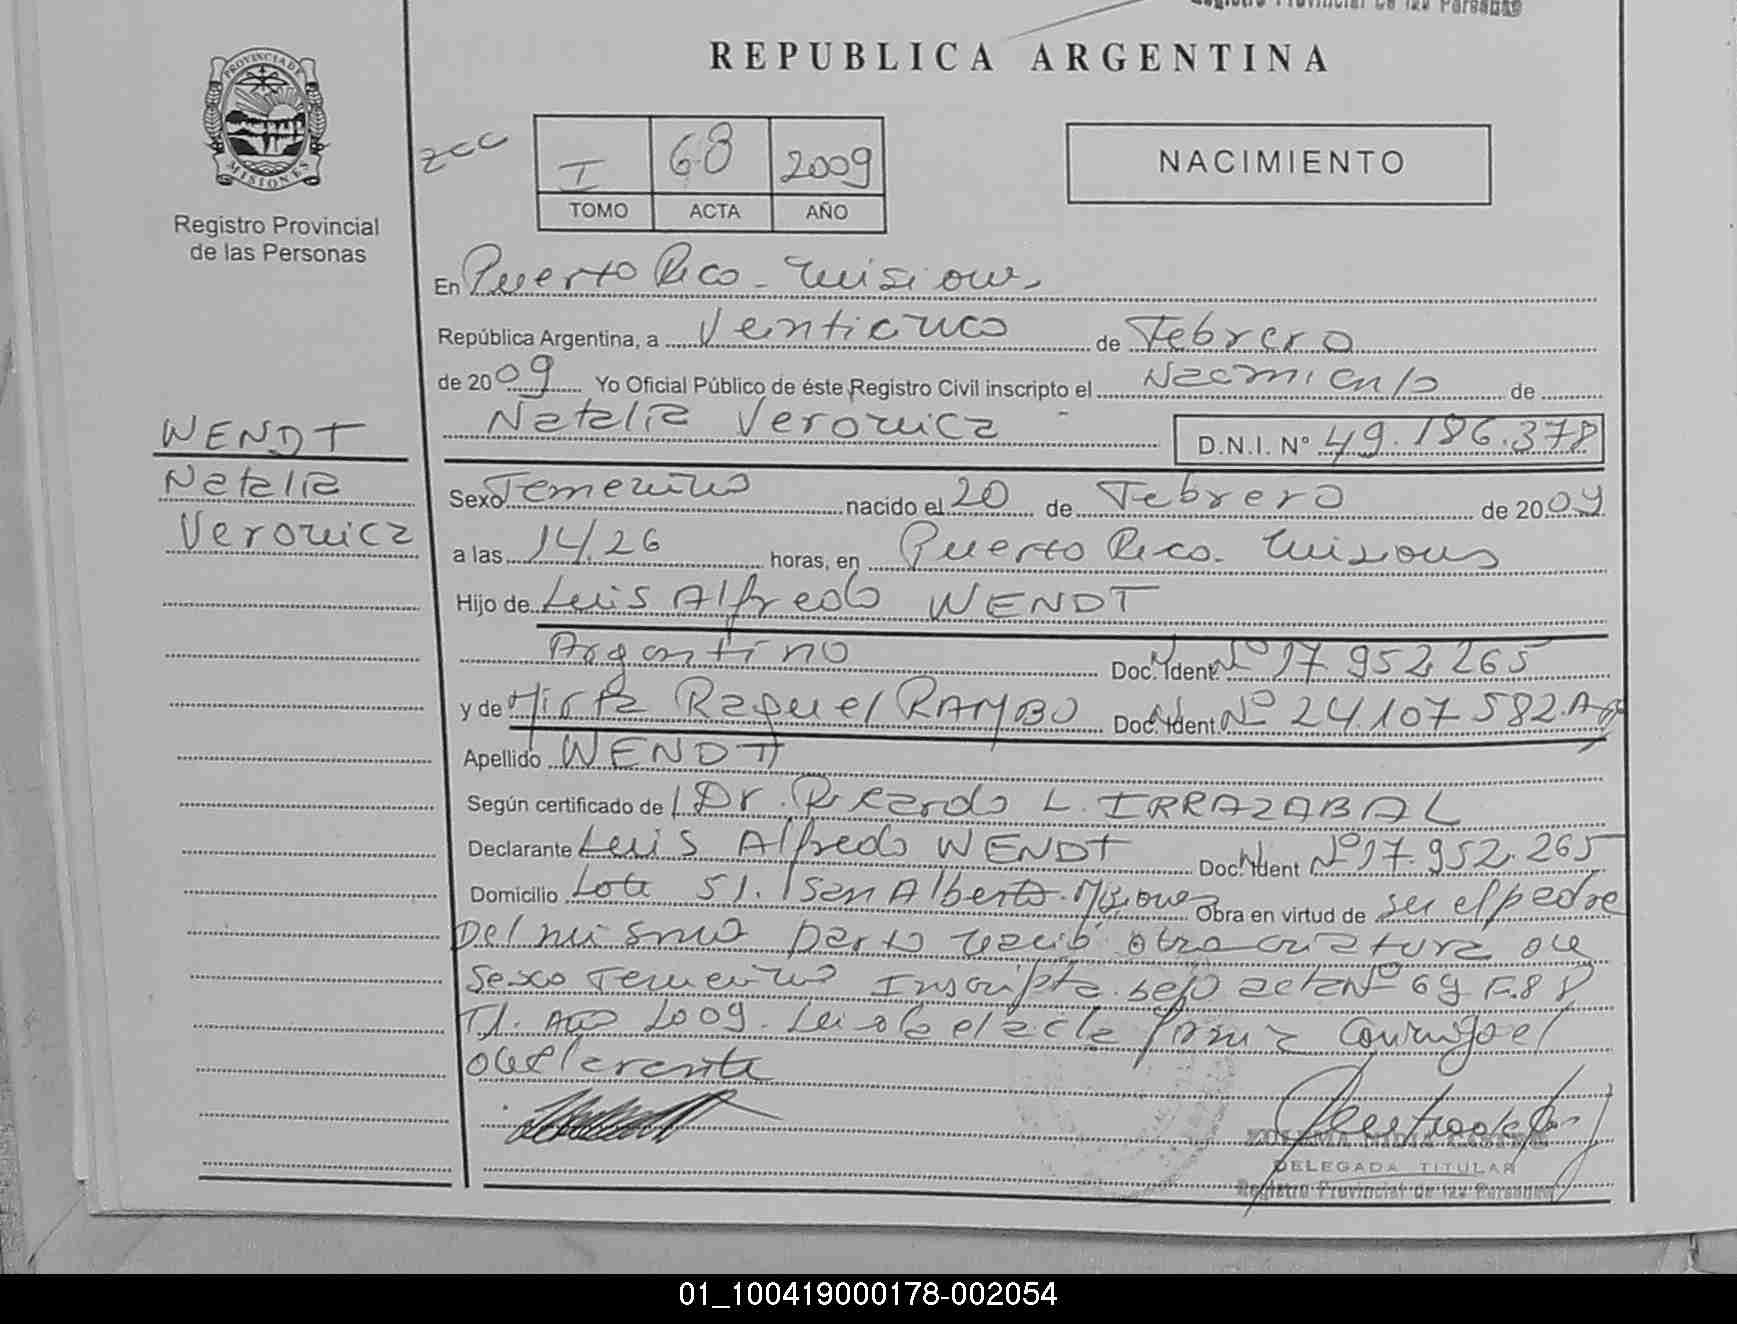 Registro Provincial de las Personas
REPUBLICA ARGENTINA
PROVINCIA DE
MISIONES
Registro Provincial
de las Personas
I 68 2009
TOMO ACTA AÑO
NACIMIENTO
En Puerto Rico - Misiones
República Argentina, a Venticinco de Febrero
de 2009 Yo Oficial Público de éste Registro Civil inscripto el Nacimiento de
Natalia Veronica D.N.I. N° 49.186.378
WENDT
Natalia
Veronica
Sexo Femenino nacido el 20 de Febrero de 2009
a las 14.26 horas, en Puerto Rico. Misiones
Hijo de Luis Alfredo WENDT
Argentino Doc. Ident N° 17.952.265
y de Mirta Raquel RAMBO Doc. Ident. N° 24.107.582. Arg
Apellido WENDT
Según certificado de Dr. Ricardo L. IRRAZABAL
Declarante Luis Alfredo WENDT Doc. Ident N° 17.952.265
Domicilio Lote 51. San Alberto. Misiones Obra en virtud de ser el padre
Del mismo parto nació otra criatura de
sexo Femenino Inscripta bajo acta N° 69 F.88
T1. Año 2009. Leida el acta firma conmigo el
declarante
DELEGADA TITULAR
Registro Provincial de las Personas
01_100419000178-002054